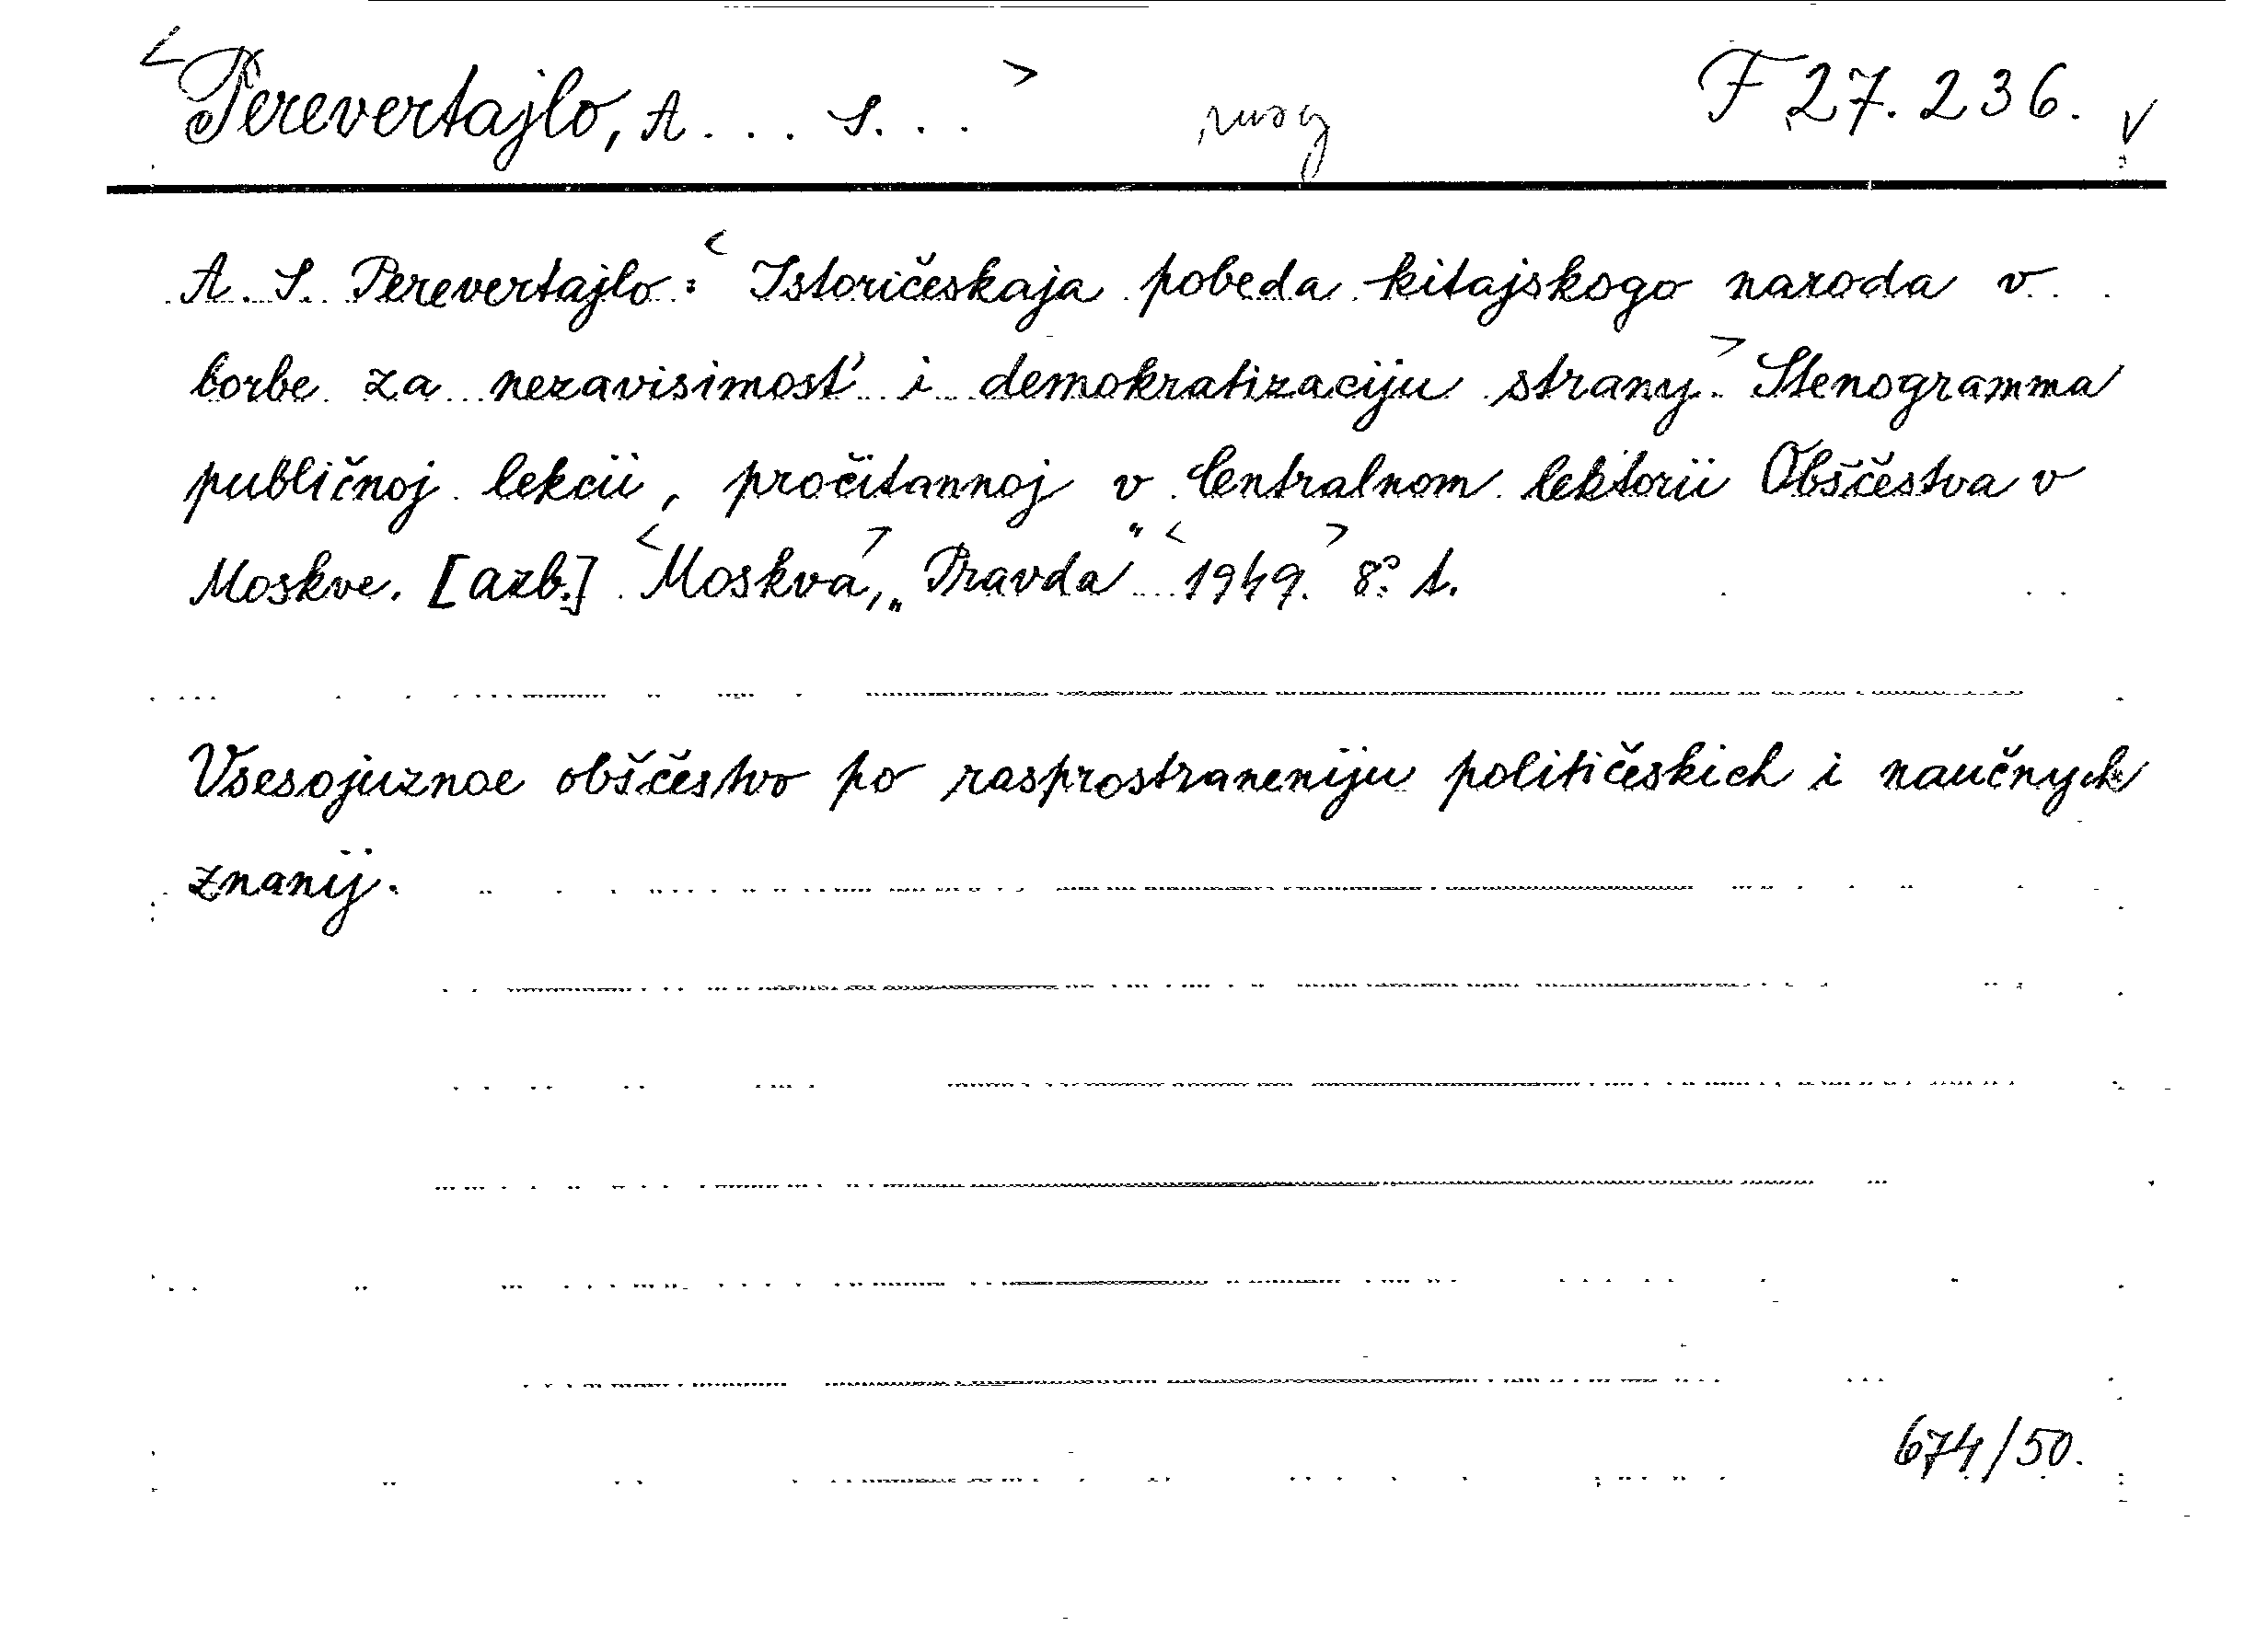 <Perevertajlo, A... S...> F 27.236. v
A. S. Perevertajlo: <Istoričeskaja pobeda kitajskogo naroda v
borbe za nezavisimost' i demokratizaciju strany.> Stenogramma
publičnoj lekcii, pročitannoj v Centralnom lektorii Obščestva v
Moskve. [azb.] <Moskva>, „Pravda" <1949.> 8° 1.
Vsesojuznoe obščestvo po rasprostraneniju političeskich i naučnych
znanij.
674/50.